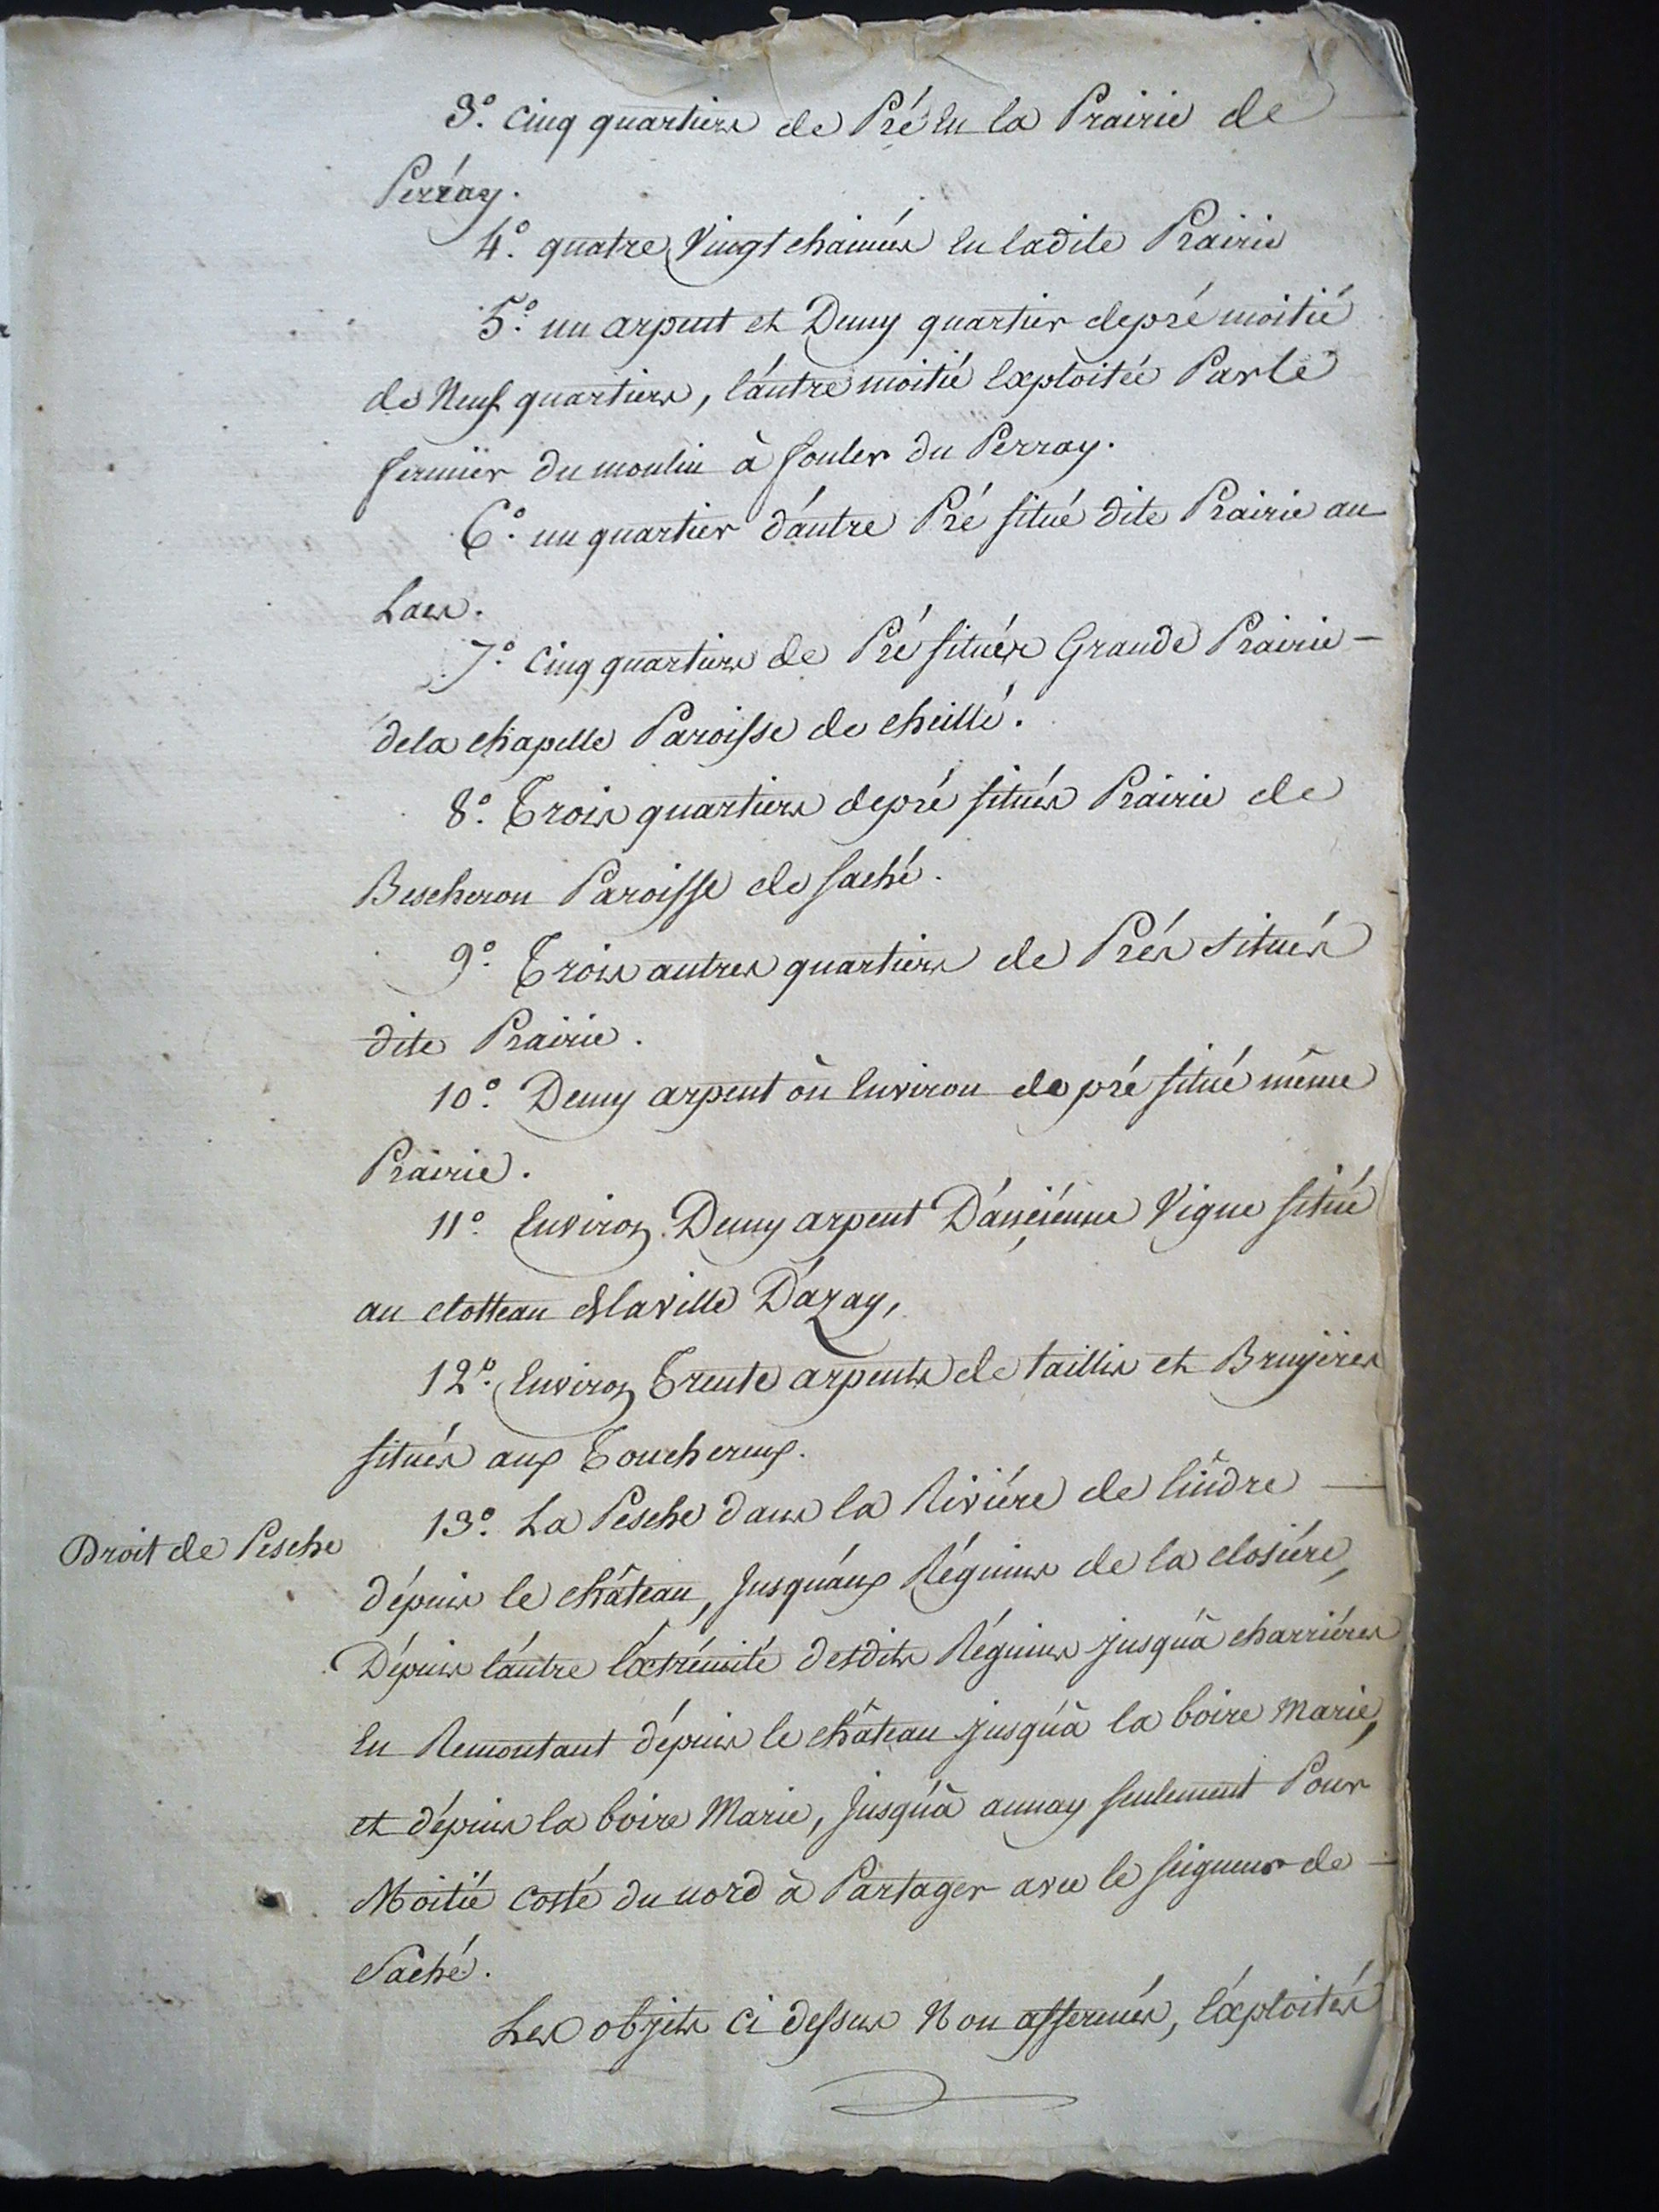 3º. Cinq quartiers de Pré en la Prairie de
Perray.
4º. quatre Vingt chainées en ladite Prairie
5º. un arpent et Demy quartier de pré moitié
de Neuf quartiers, l'autre moitié Exploitée Par le
fermier du moulin à fouler du Perray.
6º. un quartier d'autre Pré situé dite Prairie au
Lais.
7º. Cinq quartiers de Pré situés Grande Prairie
de la Chapelle Paroisse de Cheillé.
8º. Trois quartiers de pré situés Prairie de
Bescheron Paroisse de Saché.
9º. Trois autres quartiers de Prés situés
dite Prairie.
10º. Demy arpent où Environ de pré situé même
Prairie.
11º. Environ Demy arpent D'anciénne Vigne situé
au Clotteau & la ville D'azay,
12º. Environ Trente arpents de taillis et Bruyères
situés aux Touchereux.
13º. La Pesche dans la Riviére de l'indre
Droit de Pesche
dépuis le château, Jusqu'aux Réguins de la closiére,
Dépuis l'autre Extrémité desdits Réguins jusqu'à charriéres
En Remontant dépuis le château jusqu'à la boire Marie,
et dépuis la boire Marie, Jusqu'à aunay seulement Pour
Moitié costé du nord à Partager avec le seigneur de
Saché.
Les objets Ci dessus Non affermés, Exploités